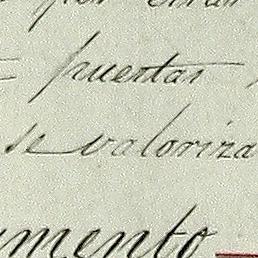 puertas
se valoriza
mento